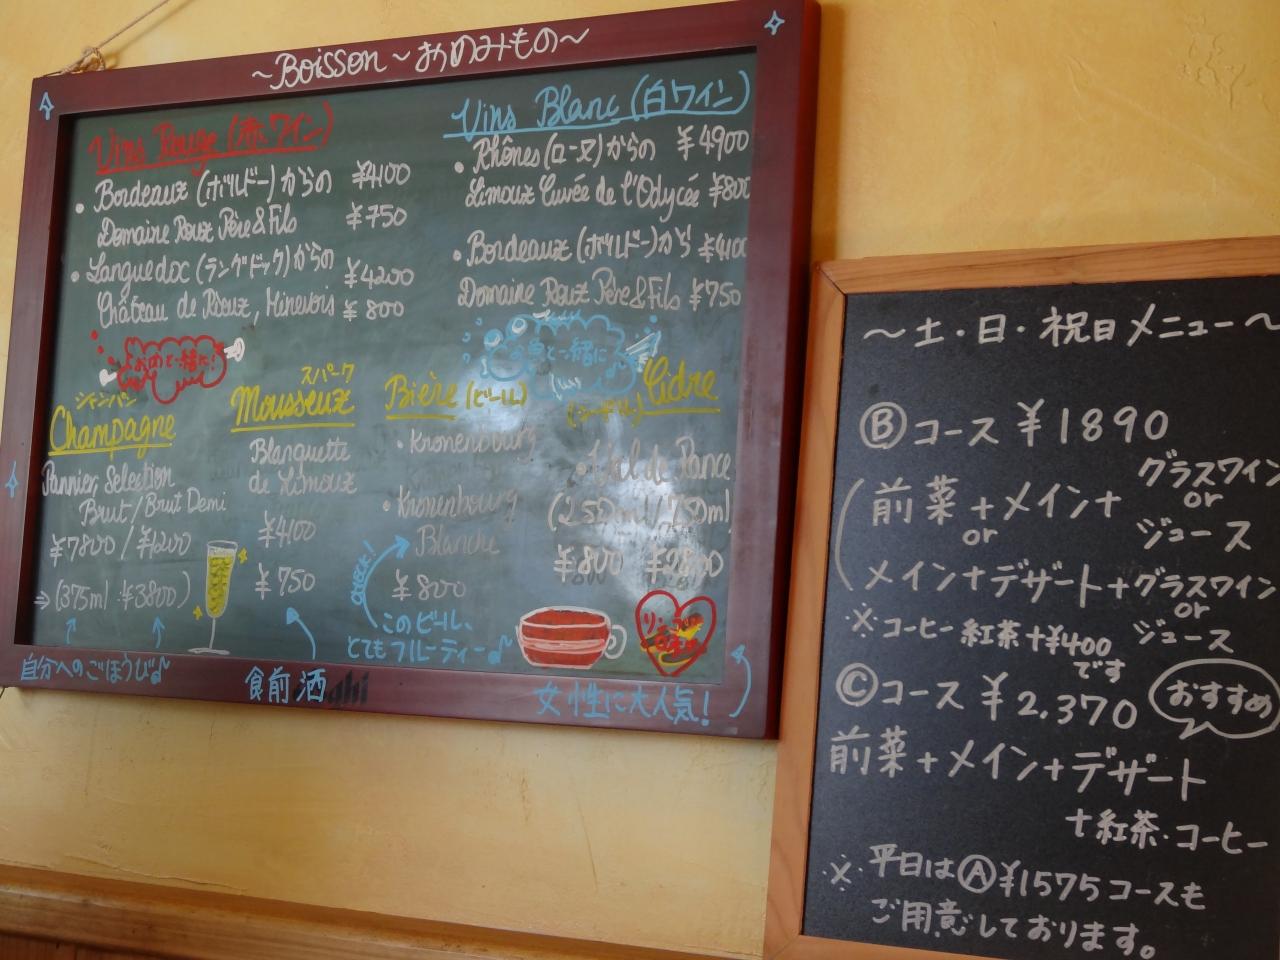 ～Boisson～おのみもの～
Vins Rouge (赤ワイン)
・Bordeaux (ボルドー)からの ¥4100
Domaine Roux Père & Fils ¥750
・Languedoc (ラングドック)からの ¥4200
Château de Rieux, Minervois ¥800
お肉と一緒に!
Vins Blanc (白ワイン)
・Rhônes (ローヌ)からの ¥4900
Limoux Cuvée de l'Odycée ¥800
・Bordeaux (ボルドー)から ¥4100
Domaine Roux Père & Fils ¥750
お魚と一緒に
シャンパン
Champagne
Pannier Selection
Brut/Brut Demi
¥7800/¥1200
⇒(375ml ¥3800)
自分へのごほうび♪
スパーク
Mousseux
Blanquette
de Limoux
¥4100
¥750
食前酒
Bière (ビール)
・Kronenbourg
・Kronenbourg
Blanche
¥800
このビール、
とてもフルーティー♪
(シードル) Cidre
・Val de Rance
(250ml/750ml)
¥800 ¥2800
女性に大人気!
～土・日・祝日メニュー～
Ⓑコース ¥1890
前菜+メイン+グラスワイン
or
ジュース
or
メイン+デザート+グラスワイン
or
ジュース
※コーヒー紅茶+¥400
です
Ⓒコース ¥2.370
おすすめ
前菜+メイン+デザート
+紅茶・コーヒー
※平日はⒶ¥1575コースも
ご用意しております。